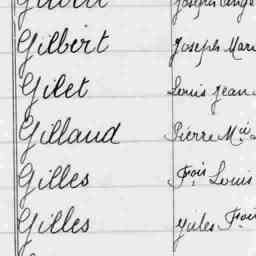 Gilbert Joseph Mari
Gilet Louis Jean
Gillaud Pierre Mie
Gilles Fois Louis
Gilles Jules Fois